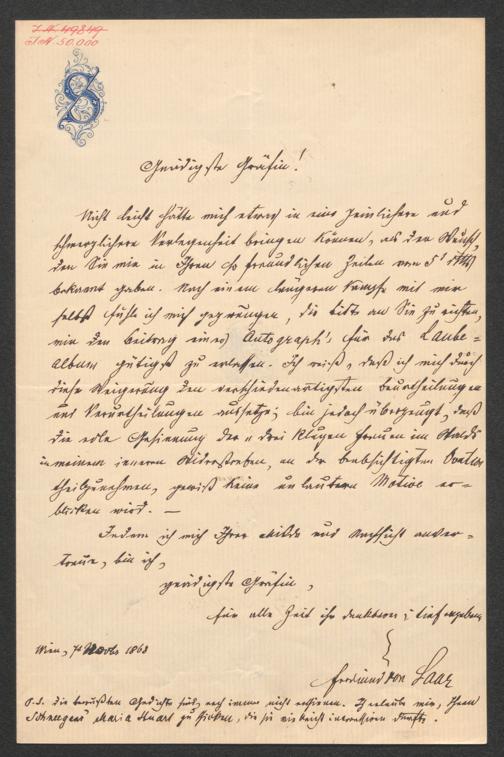 I.N. 49849
I.N. 50.000
S
Gnädigste Gräfin!
Nicht leicht hätte mich etwas in eine peinlichere und
schmerzlichere Verlegenheit bringen können, als der Wunsch,
den Sie mir in Ihren so freundlichen Zeilen vom 5t
bekannt gaben. Nach einem längeren Kampfe mit mir
selbst fühle ich mich gezwungen, die Bitte an Sie zu richten,
mir den Beitrag eines Autograph's für das Laube-
Album gütigst zu erlassen. Ich weiß, daß ich mich durch
diese Weigerung den verschiedenartigsten Beurtheilungen
und Verurtheilungen aussetze; bin jedoch überzeugt, daß
die edle Gesinnung der „drei klugen Frauen im Walde
in meinem inneren Widerstreben, an der beabsichtigten Ovation
theilzunehmen, gewiß keine unlautern Motive er-
blicken wird. —
Indem ich mich Ihrer Milde und Nachsicht anver-
traue, bin ich,
gnädigste Gräfin,
für alle Zeit Ihr dankbarer, tief ergebener
Wien, 7t 186
Ferdinand von Saar
P.S. Die bewußten Gedichte sind noch immer nicht erschienen. Ich erlaube mir, Ihnen
Schneegans' Maria Stuart zu schicken, die sie vielleicht interessiren dürfte.